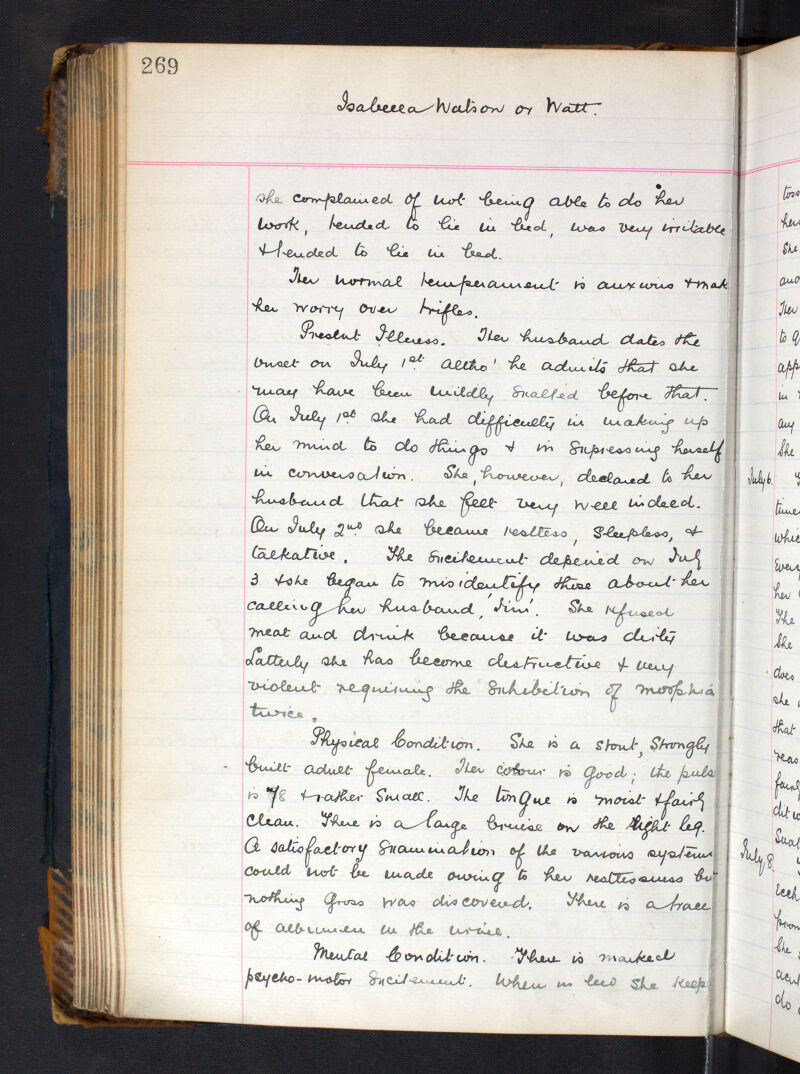 269
Isabella Watson or Watt.
she complained of not being able to do her
work, tended to lie in bed, was very irritable
& tended to lie in bed.
Her normal temperament is anxious & mak
her worry over trifles.
Present Illness. Her husband dates the
onset on July 1st altho' he admits that she
may have been mildly exalted before that.
On July 1st she had difficulty in making up
her mind to do things & in expressing herself
in conversation. She, however, declared to her
husband that she felt very well indeed.
On July 2nd she became restless, sleepless, &
talkative. The excitement depened on July
3 & she began to misidentify those about her
calling her husband, 'Jim'. She refused
meat and drink because it was dirty
Latterly she has become destructive & very
violent requiring the exhibition of morphia
twice.
Physical Condition. She is a stout, strongly
built adult female. Her colour is good; the puls
is 78 & rather small. The tongue is moist & fairly
clean. There is a large bruise on the right leg.
A satisfactory examination of the various systems
could not be made owing to her restlessness bu
nothing gross was discovered. There is a trace
of albumen in the urine.
Mental Condition. There is marked
psycho-motor excitement. When in bed she keep
toss
her
She
and
Her
to g
app
in
any
She
July 6.
time
whic
even
her
The
She
does
she
that
reas
fairly
dit
July 8.
She
do